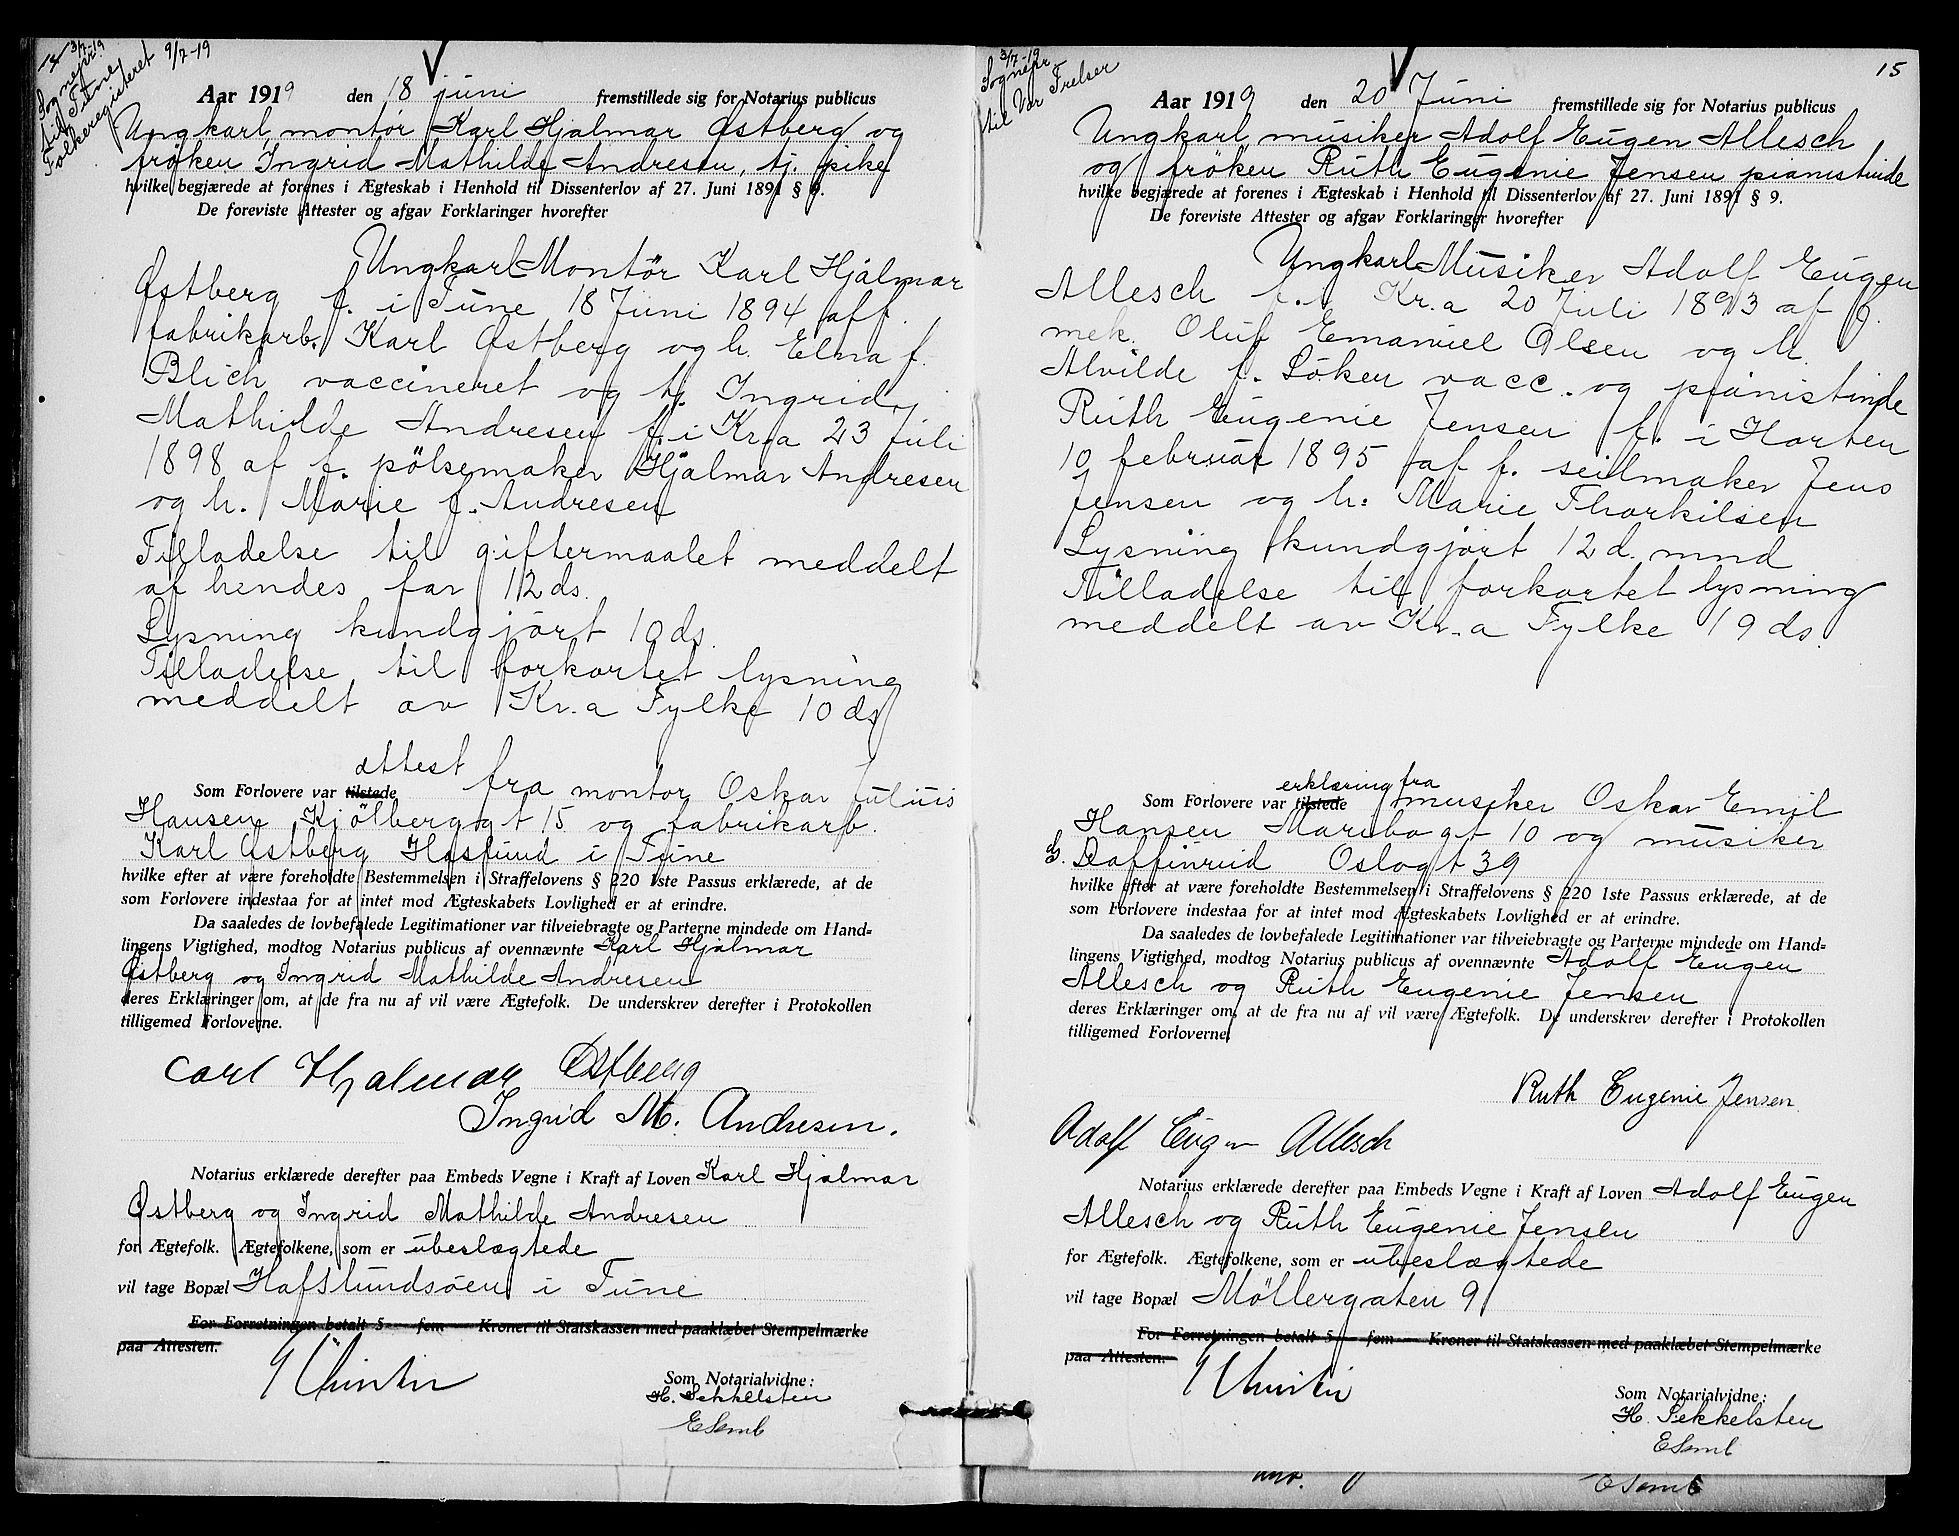 3/7-19
Sognepr.
til Tune
Folkeregisteret 9/7-19
Aar 1919 den 18 juni fremstillede sig for Notarius publicus
Ungkarl, montør Karl Hjalmar Østberg og
frøken Ingrid Mathilde Andresen, tj. pike
hvilke begjærede at forenes i Ægteskab i Henhold til Dissenterlov af 27. Juni 1891 § 9.
De foreviste Attester og afgav Forklaringer hvorefter
Ungkarl Montör Karl Hjalmar
Østberg f. i Tune 18 Juni 1894 af f.
fabrikarb. Karl Østberg og h. Elna f.
Blich vaccineret og h. Ingrid
Mathilde Andresen f. i Kr.a 23 Juli
1898 af f. pölsemaker Hjalmar Andresen
og h. Marie f. Andresen
Tilladelse til giftermaalet meddelt
af hendes far 12 ds.
Lysning kundgjort 10 ds.
Tilladelse til forkortet lysning
meddelt av Kr.a Fylke 10 ds
attest
Som Forlovere var tilstede fra montør Oskar Julius
Hansen Kjölberggt 15 og fabrikarb.
Karl Østberg Haslund i Tune
hvilke efter at være foreholdte Bestemmelsen i Straffelovens § 220 1ste Passus erklærede, at de
som Forlovere indestaa for at intet mod Ægteskabets Lovlighed er at erindre.
Da saaledes de lovbefalede Legitimationer var tilveiebragte og Parterne mindede om Hand=
lingens Vigtighed, modtog Notarius publicus af ovennævnte Karl Hjalmar
Østberg og Ingrid Mathilde Andresen
deres Erklæringer om, at de fra nu af vil være Ægtefolk. De underskrev derefter i Protokollen
tilligemed Forloverne.
Carl Hjalmar Østberg
Ingrid M. Andresen.
Notarius erklærede derefter paa Embeds Vegne i Kraft af Loven Karl Hjalmar
Østberg og Ingrid Mathilde Andresen
for Ægtefolk. Ægtefolkene, som er ubeslægtede
vil tage Bopæl Hafslundsøen i Tune
For Forretningen betalt 5 — fem — Kroner til Statskassen med paaklæbet Stempelmærke
paa Attesten.
Som Notarialvidne:
H. Sekkelsten
E Semb
3/7-19
Sognepr.
til Vor Frelser
15
Aar 1919 den 20 Juni fremstillede sig for Notarius publicus
Ungkarl, musiker Adolf Eugen Allesch
og fröken Ruth Eugenie Jensen pianistinde
hvilke begjærede at forenes i Ægteskab i Henhold til Dissenterlov af 27. Juni 1891 § 9.
De foreviste Attester og afgav Forklaringer hvorefter
Ungkarl Musiker Adolf Eugen
Allesch f. i Kr.a 20 Juli 1893 af f.
mek. Oluf Emanuel Olsen og h.
Alvilde f. Löken vacc. og pianistinde
Ruth Eugenie Jensen f. i Horten
10 februar 1895 af f. seilmaker Jens
Jensen og h: Marie Thorkilsen
Lysning kundgjort 12 d. mnd
Tilladelse til forkortet lysning
meddelt av Kr.a Fylke 19 ds.
erklæring fra
Som Forlovere var tilstede musiker Oskar Emil
Hansen Maribogt 10 og musiker
Raffinrud Oslogt 39
hvilke efter at være foreholdte Bestemmelsen i Straffelovens § 220 1ste Passus erklærede, at de
som Forlovere indestaa for at intet mod Ægteskabets Lovlighed er at erindre.
Da saaledes de lovbefalede Legitimationer var tilveiebragte og Parterne mindede om Hand=
lingens Vigtighed, modtog Notarius publicus af ovennævnte Adolf Eugen
Allesch og Ruth Eugenie Jensen
deres Erklæringer om, at de fra nu af vil være Ægtefolk. De underskrev derefter i Protokollen
tilligemed Forloverne.
Ruth Eugenie Jensen.
Adolf Eugen Allesch
Notarius erklærede derefter paa Embeds Vegne i Kraft af Loven Adolf Eugen
Allesch og Ruth Eugenie Jensen
for Ægtefolk. Ægtefolkene, som er ubeslægtede
vil tage Bopæl Möllergaten 9
For Forretningen betalt 5 — fem — Kroner til Statskassen med paaklæbet Stempelmærke
paa Attesten.
Som Notarialvidne:
H. Sekkelsten
E Semb
E Semb